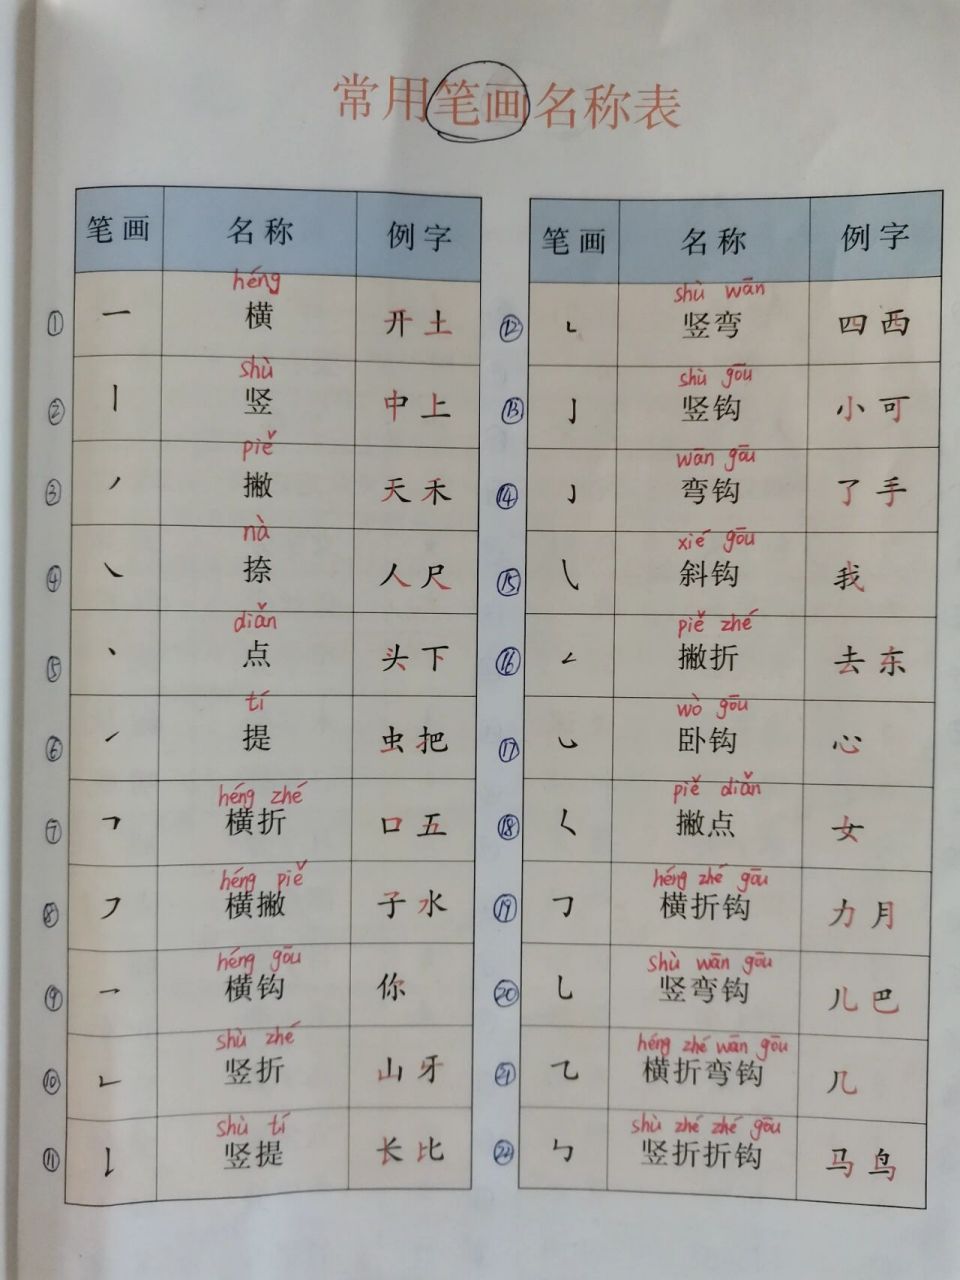 常用笔画名称表
笔画 名称 例字
héng
① ㇐ 横 开 土
shù
② ㇑ 竖 中 上
piě
③ ㇒ 撇 天 禾
nà
④ ㇏ 捺 人 尺
diǎn
⑤ ㇔ 点 头 下
tí
⑥ ㇀ 提 虫 把
héng zhé
⑦ ㇕ 横折 口 五
héng piě
⑧ ㇇ 横撇 子 水
héng gōu
⑨ ㇖ 横钩 你
shù zhé
⑩ ㇗ 竖折 山 牙
shù tí
⑪ ㇙ 竖提 长 比
笔画 名称 例字
shù wān
⑫ ㇄ 竖弯 四 西
shù gōu
⑬ ㇚ 竖钩 小 可
wān gōu
⑭ ㇁ 弯钩 了 手
xié gōu
⑮ ㇂ 斜钩 我
piě zhé
⑯ ㇜ 撇折 去 东
wò gōu
⑰ ㇃ 卧钩 心
piě diǎn
⑱ ㇛ 撇点 女
héng zhé gōu
⑲ ㇆ 横折钩 力 月
shù wān gōu
⑳ ㇟ 竖弯钩 儿 巴
héng zhé wān gōu
㉑ ㇈ 横折弯钩 几
shù zhé zhé gōu
㉒ ㇉ 竖折折钩 马 鸟